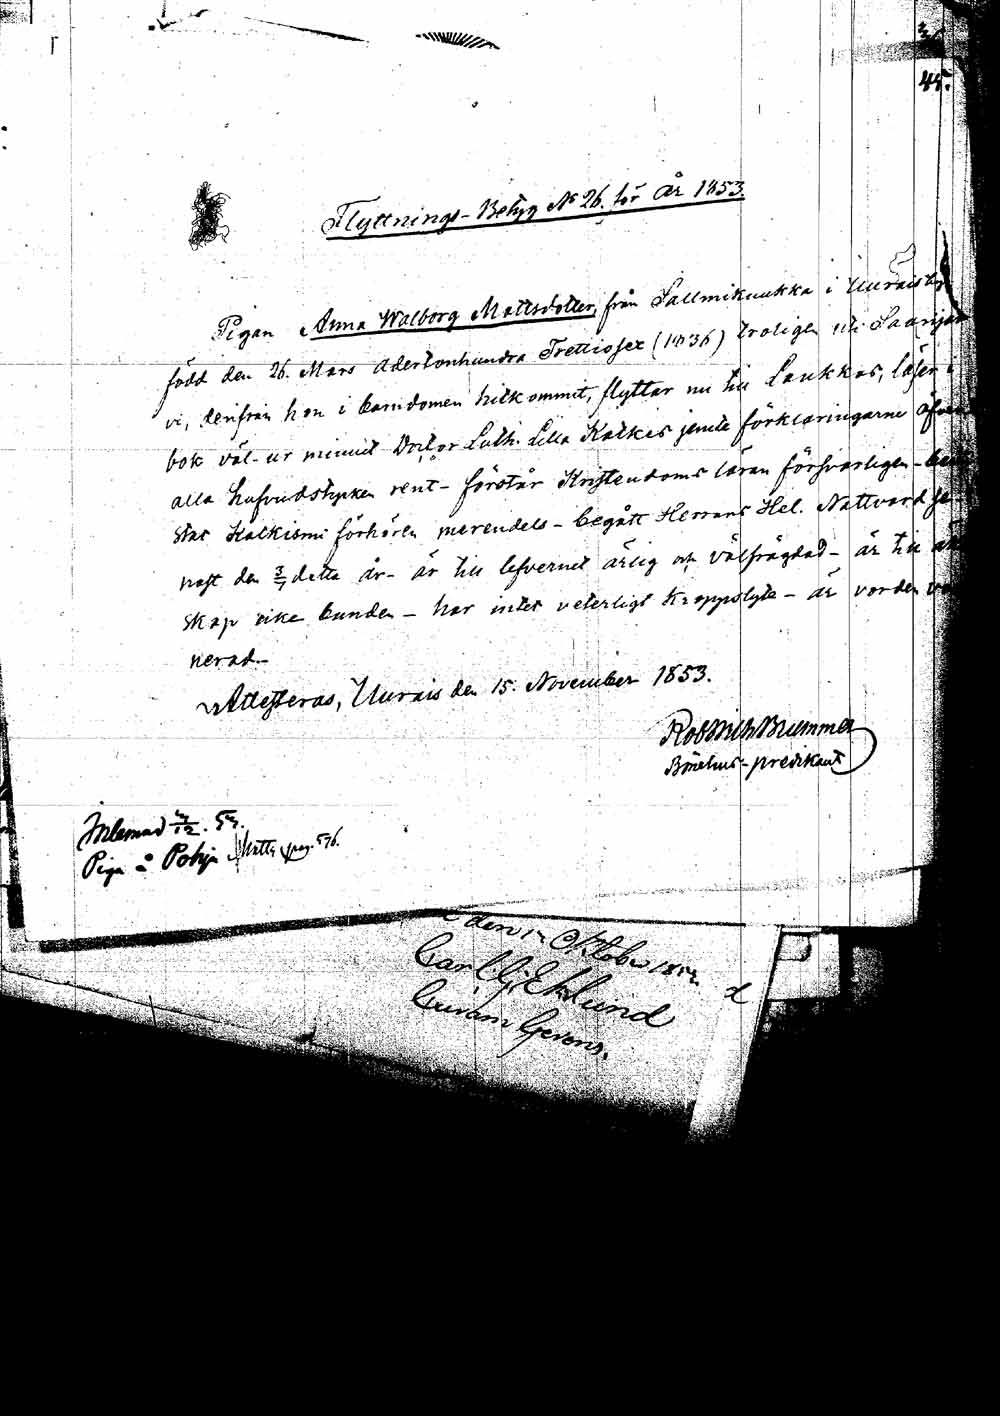 45.
Flyttnings-Betyg No 26. för År 1853.
Pigan Anna Walborg Mattsdotter, från Sallmikuukka i Uurais by
född den 26. Mars Adertonhundra Trettiosex (1836) troligen i Saarijär
vi, derifrån hon i barndomen hitkommit, flyttar nu till Laukkas, läser i
bok väl- ur minnet Doctor Luth. Lilla Katkes jemte förklaringarne öfver
alla hufvudstycken rent- förstår Kristendoms läran försvarligen-
Katkismi förhören merendels- begått Herrans Hel. Nattvard se-
nast den 3/7 detta år- är till lefvernet ärlig och välfrägdad- är till äk
skap icke bunden- har intet veterligt kroppslyte- är vorden vac
nerad-
Attesteras, Uurais den 15. November 1853.
Rob Brummer
predikant
Inlemnad 3/12. 53.
Piga å Pohja pag. 576.
den 12 Oktober 185
Carl Gj Eklund
Curam Gerens.